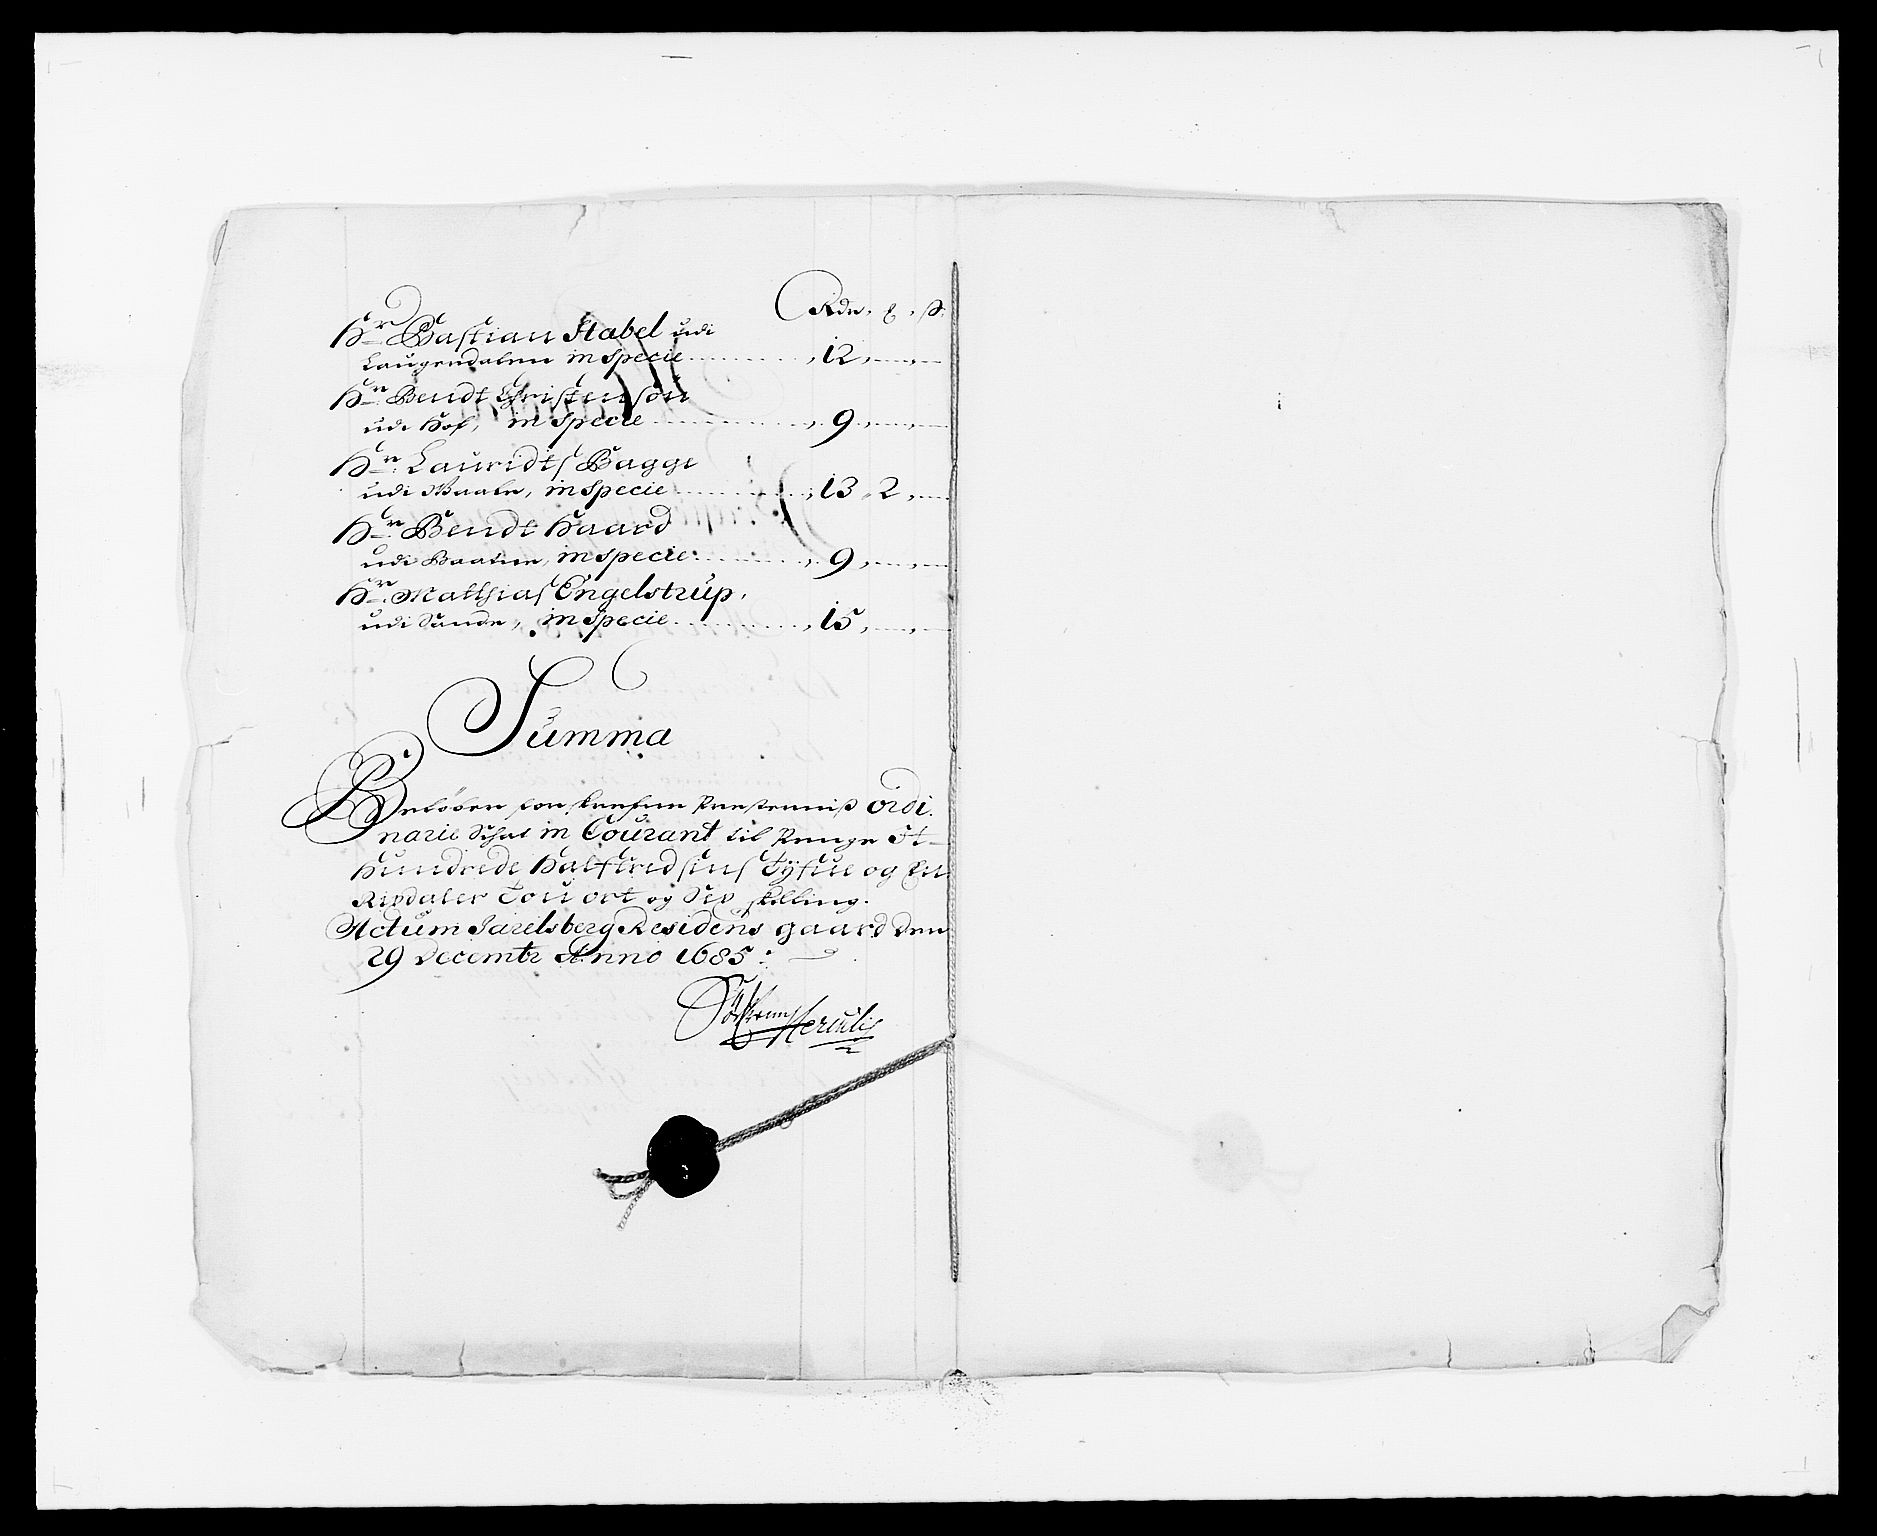 Rdr. ℥. ß.
Hr. Bastian Stabel udi
Laugendalen in specie 12
Hr. Bendt Christensøn
udi Hof, in specie 9
Hr. Lauridts Bagge
udi Waale, in specie 13 2
Hr. Bendt Haard
udi in specie 9
Hr. Matthias Engelstrup,
udi Sande, in specie 15
Summa
Beløber for Præsternis ordi
narie Schat in Courant til Penge It
Hundrede Halffierdsins Tÿfue og Fit
Rixdaler Tou ort og Sex skilling.
Actum Jarelsberg Residens gaard den
29 Decembr Anno 1685:
Herculis